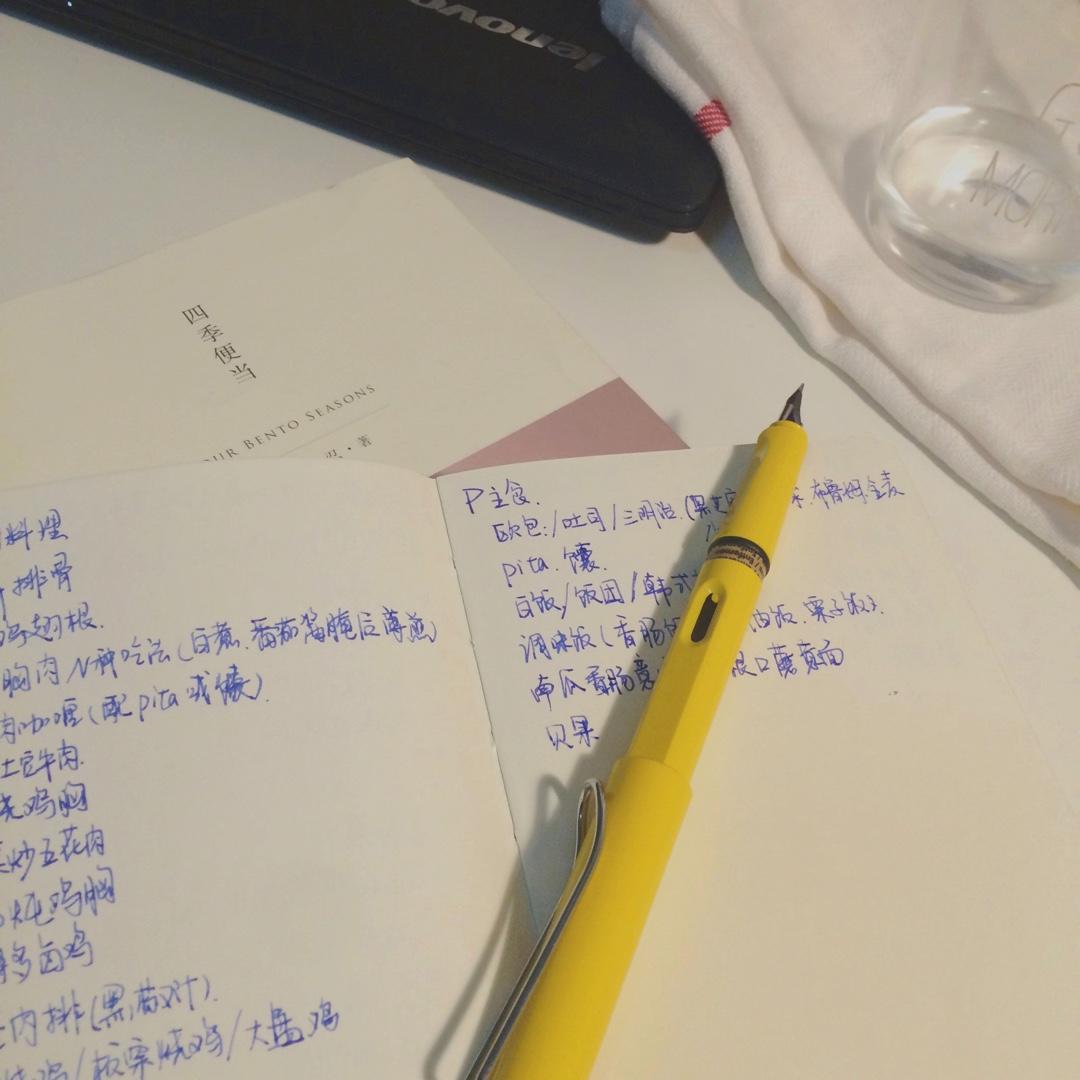 lenovo
MOR
四季便当
OUR BENTO SEASONS
忍・著
料理
排骨
鸡翅根.
胸肉N种吃法(白煮.番茄酱腌后薄煎)
肉咖喱(配pita或馕).
土豆牛肉.
烧鸡胸
炒五花肉
炖鸡胸
卤鸡
肉排(黑椒汁).
烧鸡/板栗烧鸡/大盘鸡
P主食.
欧包:/吐司/三明治.(黑芝 布骨姆.全麦
pita.馕.
白饭/饭团/韩式
调味饭(香肠饭 油饭.栗子饭).
南瓜香肠意 口蘑意面
贝果